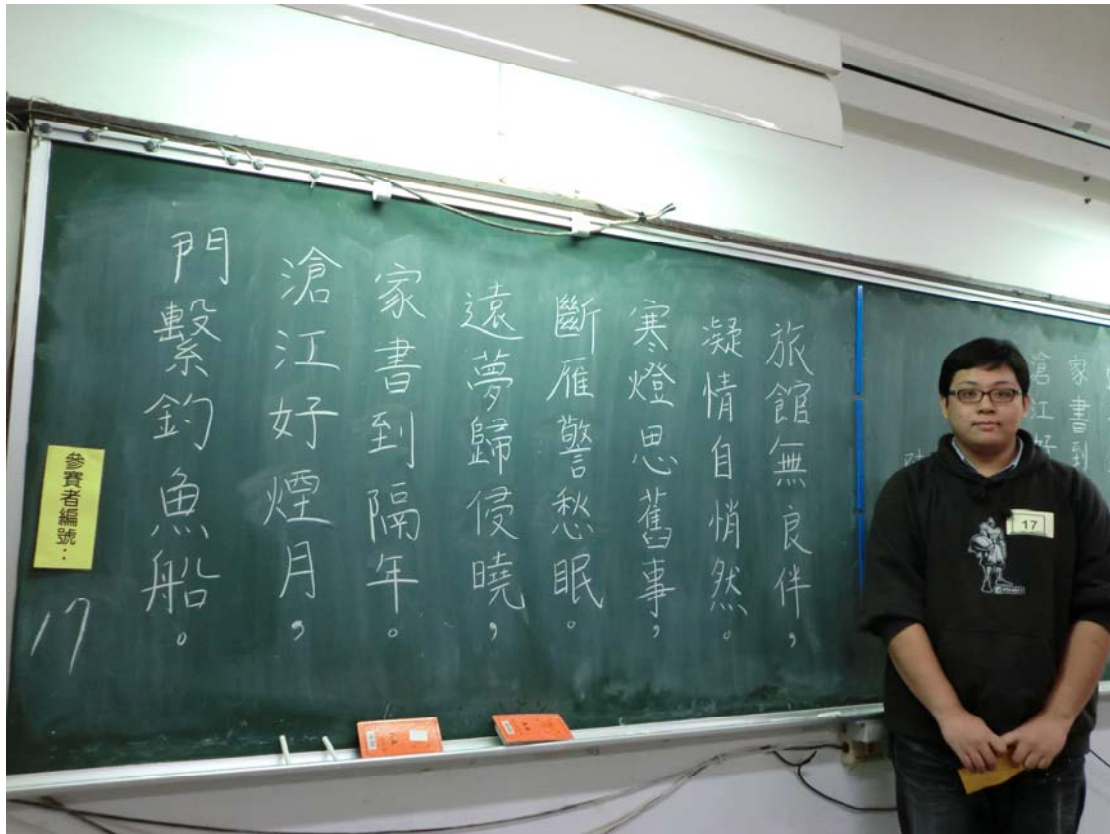 旅館無良伴，
凝情自悄然。
寒燈思舊事，
斷雁警愁眠。
遠夢歸侵曉，
家書到隔年。
滄江好煙月，
門繫釣魚船。
參賽者編號：
17
家書到
滄江好
17